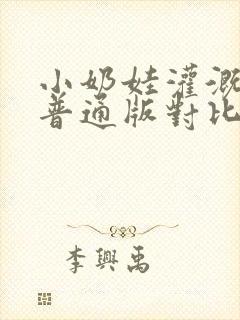 小奶娃灌溉
普通版對比
李興禹